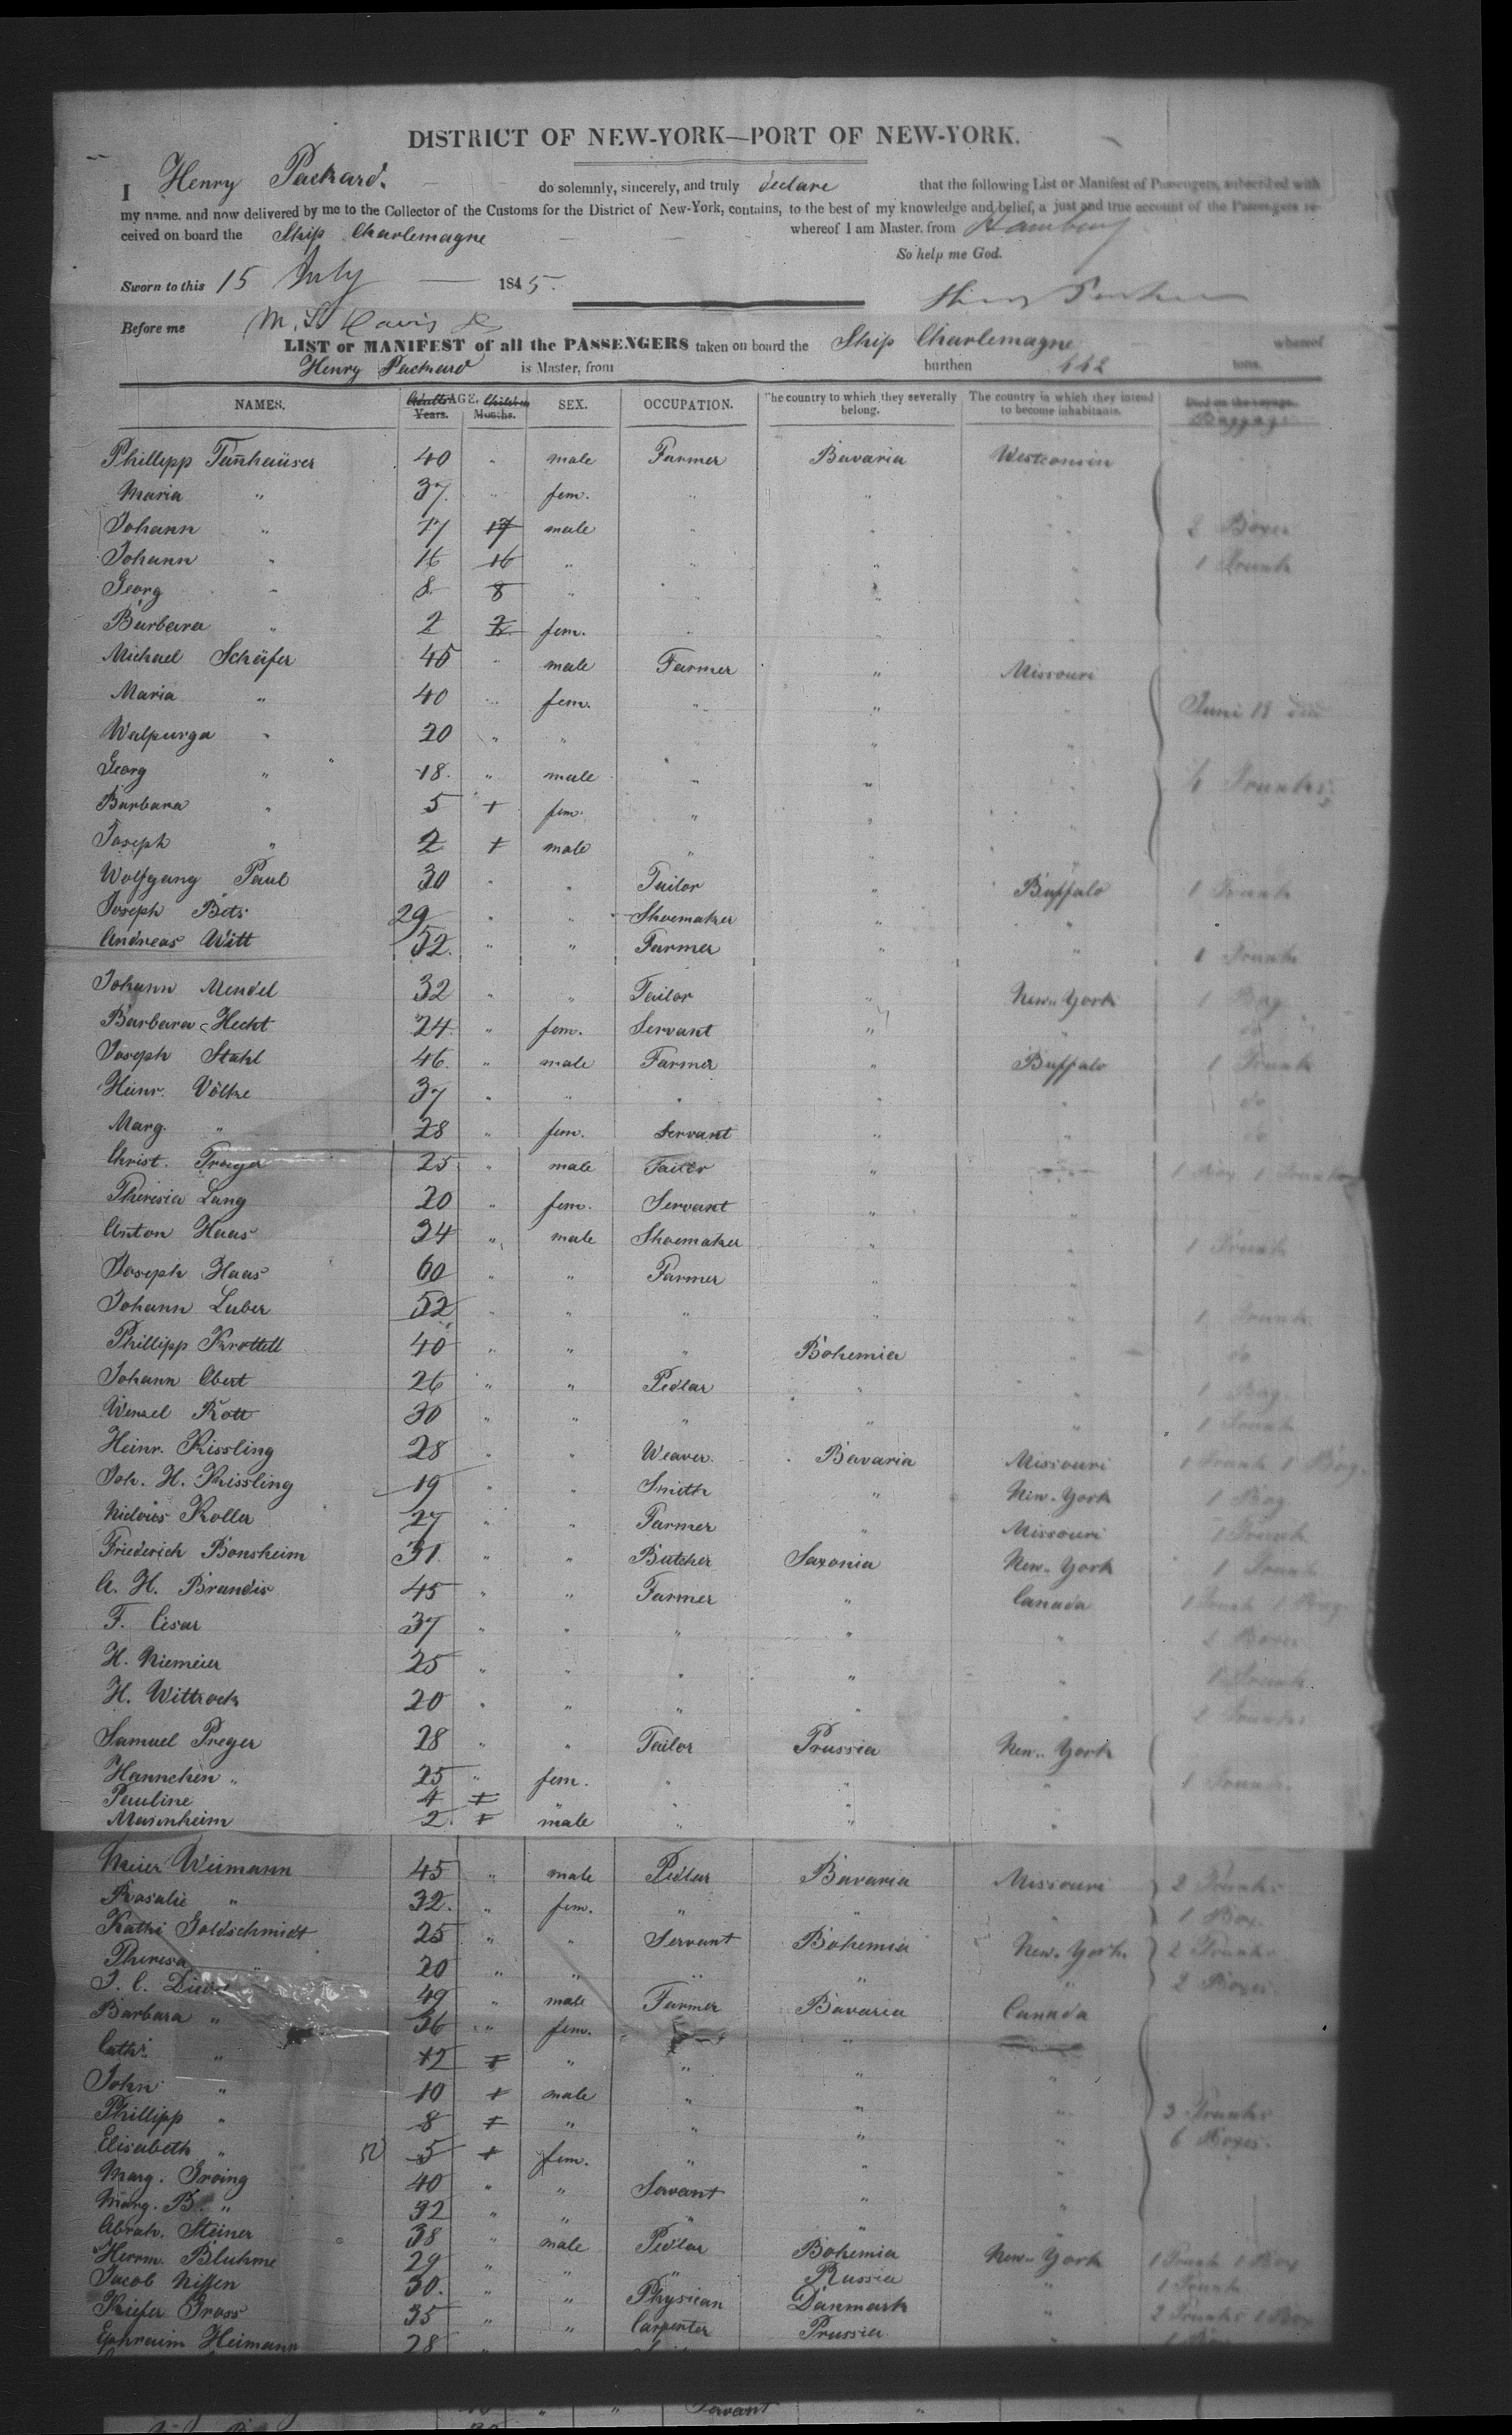 DISTRICT OF NEW-YORK—PORT OF NEW-YORK.
I Henry Packard. do solemnly, sincerely, and truly declare that the following List or Manifest of Passengers, subscribed with
my name. and now delivered by me to the Collector of the Customs for the District of New-York, contains, to the best of my knowledge and belief, a just and true account of the Passengers re-
ceived on board the Ship Charlemagne whereof I am Master. from Hamburg
So help me God.
Sworn to this 15 July 1845.
Before me M. S. Davis
LIST or MANIFEST of all the PASSENGERS taken on board the Ship Charlemagne whereof
Henry Packard is Master, from burthen 442 tons.
NAMES. Adults AGE. Children SEX. OCCUPATION. The country to which they severally belong. The country in which they intend to become inhabitants. Died on the voyage.
Years. Months. Baggage
Phillipp Tannhaüser 40 " male Farmer Bavaria Westconsin
Maria " 37. " fem. " " "
Johann " 17 17 male " " " 2 Boxes
Johann " 16 16 " " " " 1 Trunk
Georg " 8 8 " " " "
Barbara " 2 2 fem. " " "
Michael Schäfer 45 " male Farmer " Missouri
Maria " 40 " fem. " " " Juni 18
Walpurga " 20 " " " " "
Georg " 18. " male " " " 4 Trunks
Barbara " 5 + fem. " " "
Joseph " 2 + male " " "
Wolfgang Paul 30 " " Tailor " Buffalo 1 Trunk
Joseph Bets 29 " " Shoemaker " "
Andreas Witt 52. " " Farmer " " 1 Trunk
Johann Mendel 32 " " Tailor " New-York 1 Bag
Barbara Hecht 24. " fem. Servant " " do
Joseph Stahl 46. " male Farmer " Buffalo 1 Trunk
Heinr. Völke 37 " " " " " do
Marg. " 28 " fem. Servant " " do
Christ. Traeger 25 " male Tailor " " 1 Box 1 Trunk
Theresia Lang 20 " fem. Servant " "
Anton Haas 34 " male Shoemaker " " 1 Trunk
Joseph Haas 60 " " Farmer " "
Johann Luber 52 " " " " " 1 Trunk
Phillipp Krottell 40 " " " Bohemia " do
Johann Obert 26 " " Pedlar " " 1 Bag
Wenzel Rott 30 " " " " " 1 Trunk
Heinr. Kissling 28 " " Weaver. Bavaria Missouri 1 Trunk 1 Bag
Joh. H. Kissling 19 " " Smith " New-York 1 Bag
Koller 27 " " Farmer " Missouri 1 Trunk
Friederich Bonsheim 31. " " Butcher Saxonia New-York 1 Trunk
A. H. Brandis 45 " " Farmer " Canada 1 Trunk 1 Bag
F. Cesar 37 " " " " " 2 Boxes
H. Niemeier 25 " " " " " 1 Trunk
H. Wittrock 20 " " " " " 2 Trunks
Samuel Preger 28 " " Tailor Prussia New-York
Hannchen " 25 " fem. " " " 1 Trunk
Pauline 4 + " " "
Mannheim 2. + male " " "
Meier Weimann 45 " male Pedlar Bavaria Missouri 2 Trunks
Rosalie " 32. " fem. " " " 1 Box
Kathi Goldschmidt 25 " " Servant Bohemia New-York 2 Trunks
Theresa " 20 " " " " " 2 Boxes
J. C. 49 " male Farmer Bavaria Canada
Barbara " 36 " fem. "
Cath. " 12 + " " " "
John " 10 + male " " "
Phillipp " 8 + " " " " 3 Trunks
Elisabeth " 5 + fem. " " " 6 Boxes.
Marg. Groing 40 " " Servant " "
Marg. B. " 32 " " " " "
Abrah. Steiner 38 " male Pedlar Bohemia New-York 1 Trunk 1 Box
Herrm. Bluhme 29 " " " Russia " 1 Trunk
Jacob Nissen 30. " " Physician Danmark " 2 Trunks 1 Box
Kiefer Gross 35 " " Carpenter Prussia "
Ephraim Heimann 28 "
Servant